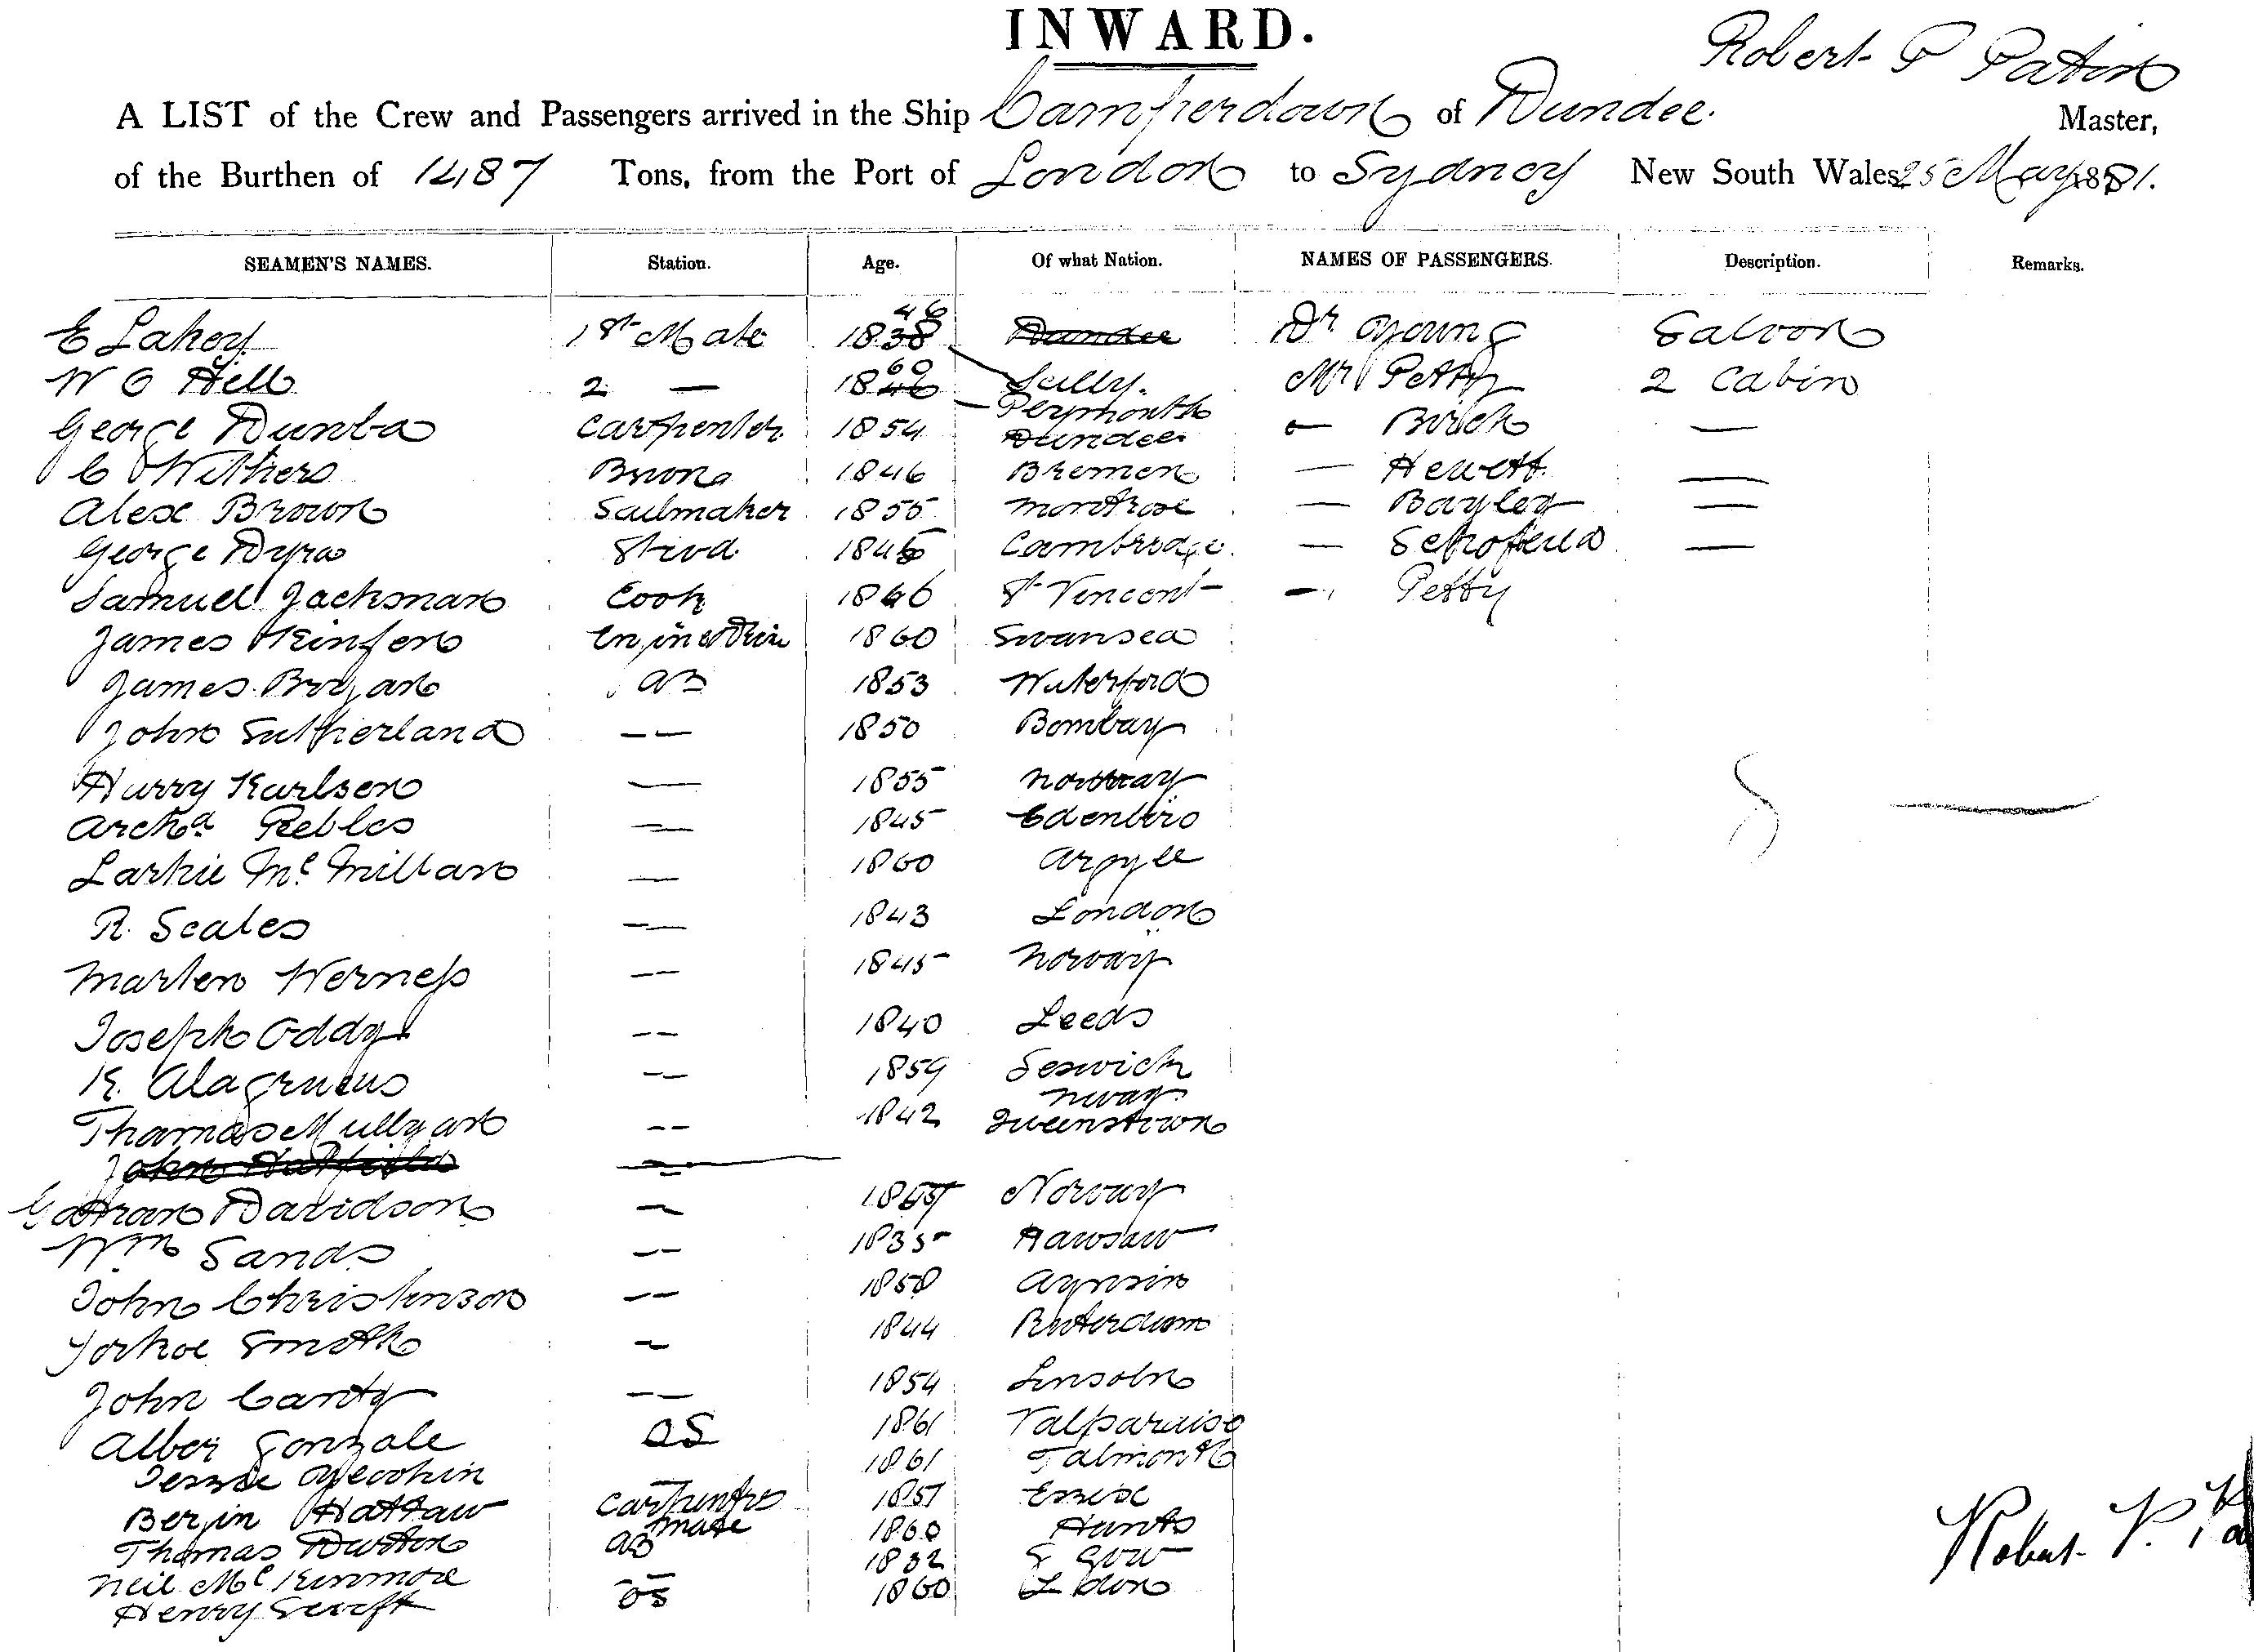 INWARD.
Robert P Paton
A LIST of the Crew and Passengers arrived in the Ship Camperdown of Dundee. Master,
of the Burthen of 1487 Tons, from the Port of London to Sydney New South Wales 25 May 1881.
SEAMEN'S NAMES. Station. Age. Of what Nation. NAMES OF PASSENGERS. Description. Remarks.
E Lakey 1st Mate 1838 46 Dundee Dr Young Saloon
W C Hill 2 — 1846 60 Scilly. Mr Petty 2 Cabin
George Dunba Carpenter 1854 Dundee — Birch —
C Withers 1846 Bremen — Hewett —
Alex Brown Sailmaker 1855 Montrose — Bayley —
George Dyra Stwd 1845 Cambridge — Schofield —
Samuel Jackman Cook 1846 St Vincent — Petty
James 1860 Swansea
James Brojan AB 1853 Waterford
John Sutherland — — 1850 Bombay
Harry Karlsen — 1855 Norway
Archd Peebles — 1845 Edenbro
Larkie Mc Millan — 1860 Argyle
R. Scales — 1843 London
Marten Werness — 1845 Norway
Joseph Oddy — 1840 Leeds
K. — 1859
Thomas Mullyan — 1842 Queenstown
John
Davidson — Norway
Wm Sands — 1835
John Christenson — 1850
Smith — 1844 Rotterdam
John Canty — 1854 Linsoln
Alber Gonzale OS 1861 Valparaiso
Jesse 1861 Talmonth
Benjin Hattaw Carpenters mate 1857 Essex
Thomas Durton AB 1860 Hants
Neil Mc Kinmore — 1832 G Gow
Henry OS 1860 L don
Robert P. Pa